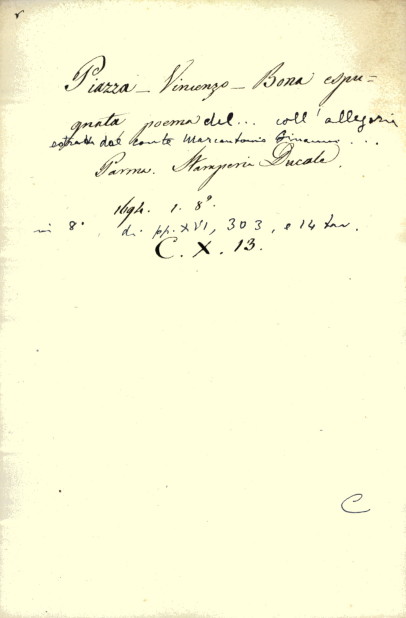 Piazza - Vincenzo - Bona espu-
gnata poema del... coll'allegoria
estratta dal conte Marcantonio Ginanni...
Parma. Stamperia Ducale.
1694. 1. 8°
in 8° di pp. XVI, 303, e 14 tav.
C. X. 13.
C